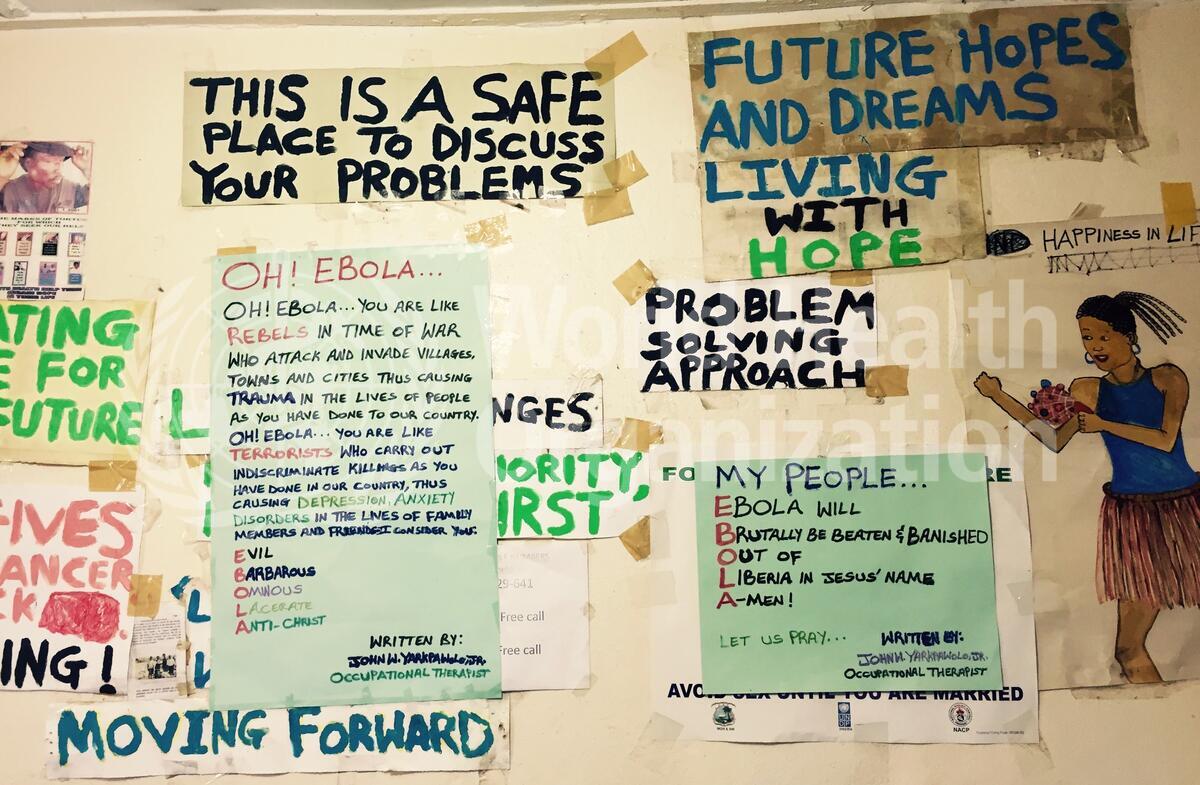 THIS IS A SAFE
PLACE TO DISCUSS
YOUR PROBLEMS
FUTURE HOPES
AND DREAMS
LIVING
WITH
HOPE
HAPPINESS IN LIF
PROBLEM
SOLVING
APPROACH
World Health
Organization
FOR WHICH
ATING
E FOR
FUTURE
L
NGES
IORITY,
IRST
OH! EBOLA...
OH! EBOLA... YOU ARE LIKE
REBELS IN TIME OF WAR
WHO ATTACK AND INVADE VILLAGES,
TOWNS AND CITIES THUS CAUSING
TRAUMA IN THE LIVES OF PEOPLE
AS YOU HAVE DONE TO OUR COUNTRY.
OH! EBOLA... YOU ARE LIKE
TERRORISTS WHO CARRY OUT
INDISCRIMINATE KILLINGS AS YOU
HAVE DONE IN OUR COUNTRY, THUS
CAUSING DEPRESSION, ANXIETY
DISORDERS IN THE LIVES OF FAMILY
MEMBERS AND FRIENDS I CONSIDER YOU:
EVIL
BARBAROUS
OMINOUS
LACERATE
ANTI-CHRIST
WRITTEN BY:
JOHN W. YARKPAWOLO, JR.
OCCUPATIONAL THERAPIST
FIVES
ANCER
CK
ING!
NUMBERS
29-641
Free call
Free call
FO
RE
MY PEOPLE...
EBOLA WILL
BRUTALLY BE BEATEN & BANISHED
OUT OF
LIBERIA IN JESUS' NAME
A-MEN!
LET US PRAY...
WRITTEN BY:
JOHN W. YARKPAWOLO, JR.
OCCUPATIONAL THERAPIST
AVOID SEX UNTIL YOU ARE MARRIED
NACP
MOVING FORWARD